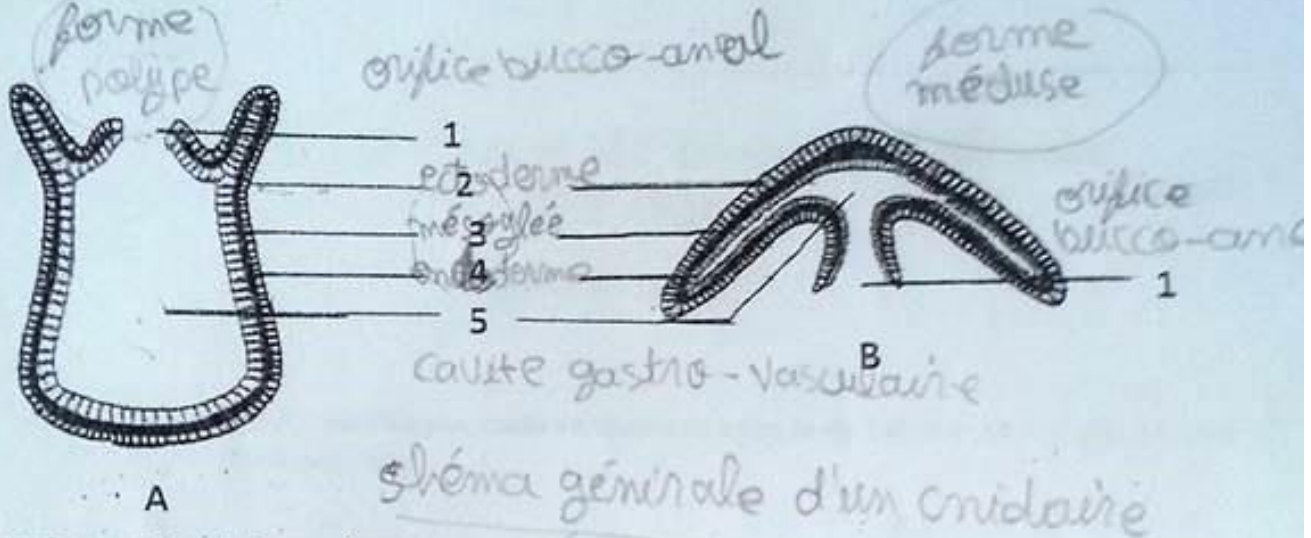 forme
polype
orifice bucco-anal
forme
méduse
1
ectoderme
2
mésoglée
3
endoderme
4
5
orifice
bucco-ana
1
cavité gastro-vasculaire
B
A
shéma générale d'un cnidaire